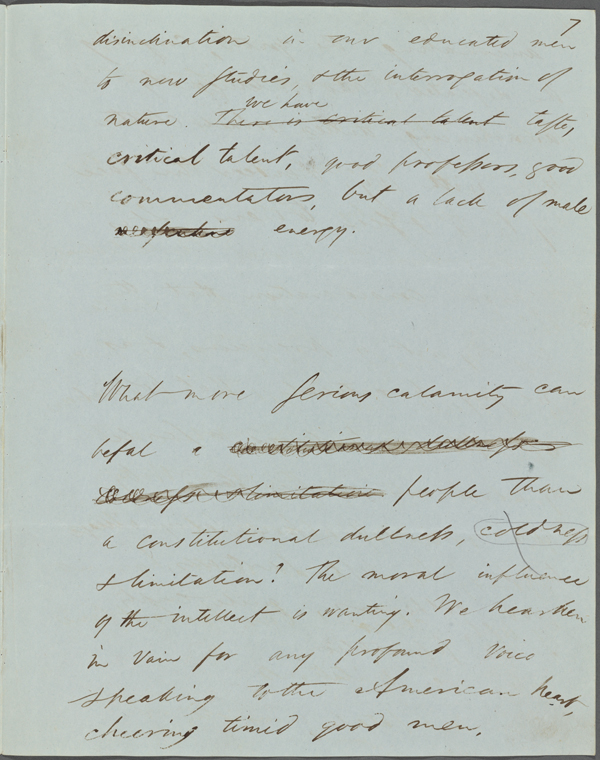 7
disinclination in our educated men
to new studies, & the interrogation of
we have
nature. There is critical talent taste,
critical talent, good professors, good
commentators, but a lack of male
energy.
What more serious calamity can
befal a
& limitation people than
a constitutional dullness, coldness
& limitation? The moral influence
of the intellect is wanting. We hearken
in vain for any profound voice
speaking to the American heart,
cheering timid good men,